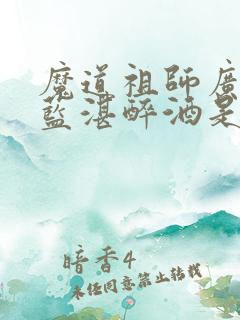 魔道祖師廣
藍湛醉酒是
暗香4
未经同意禁止转载